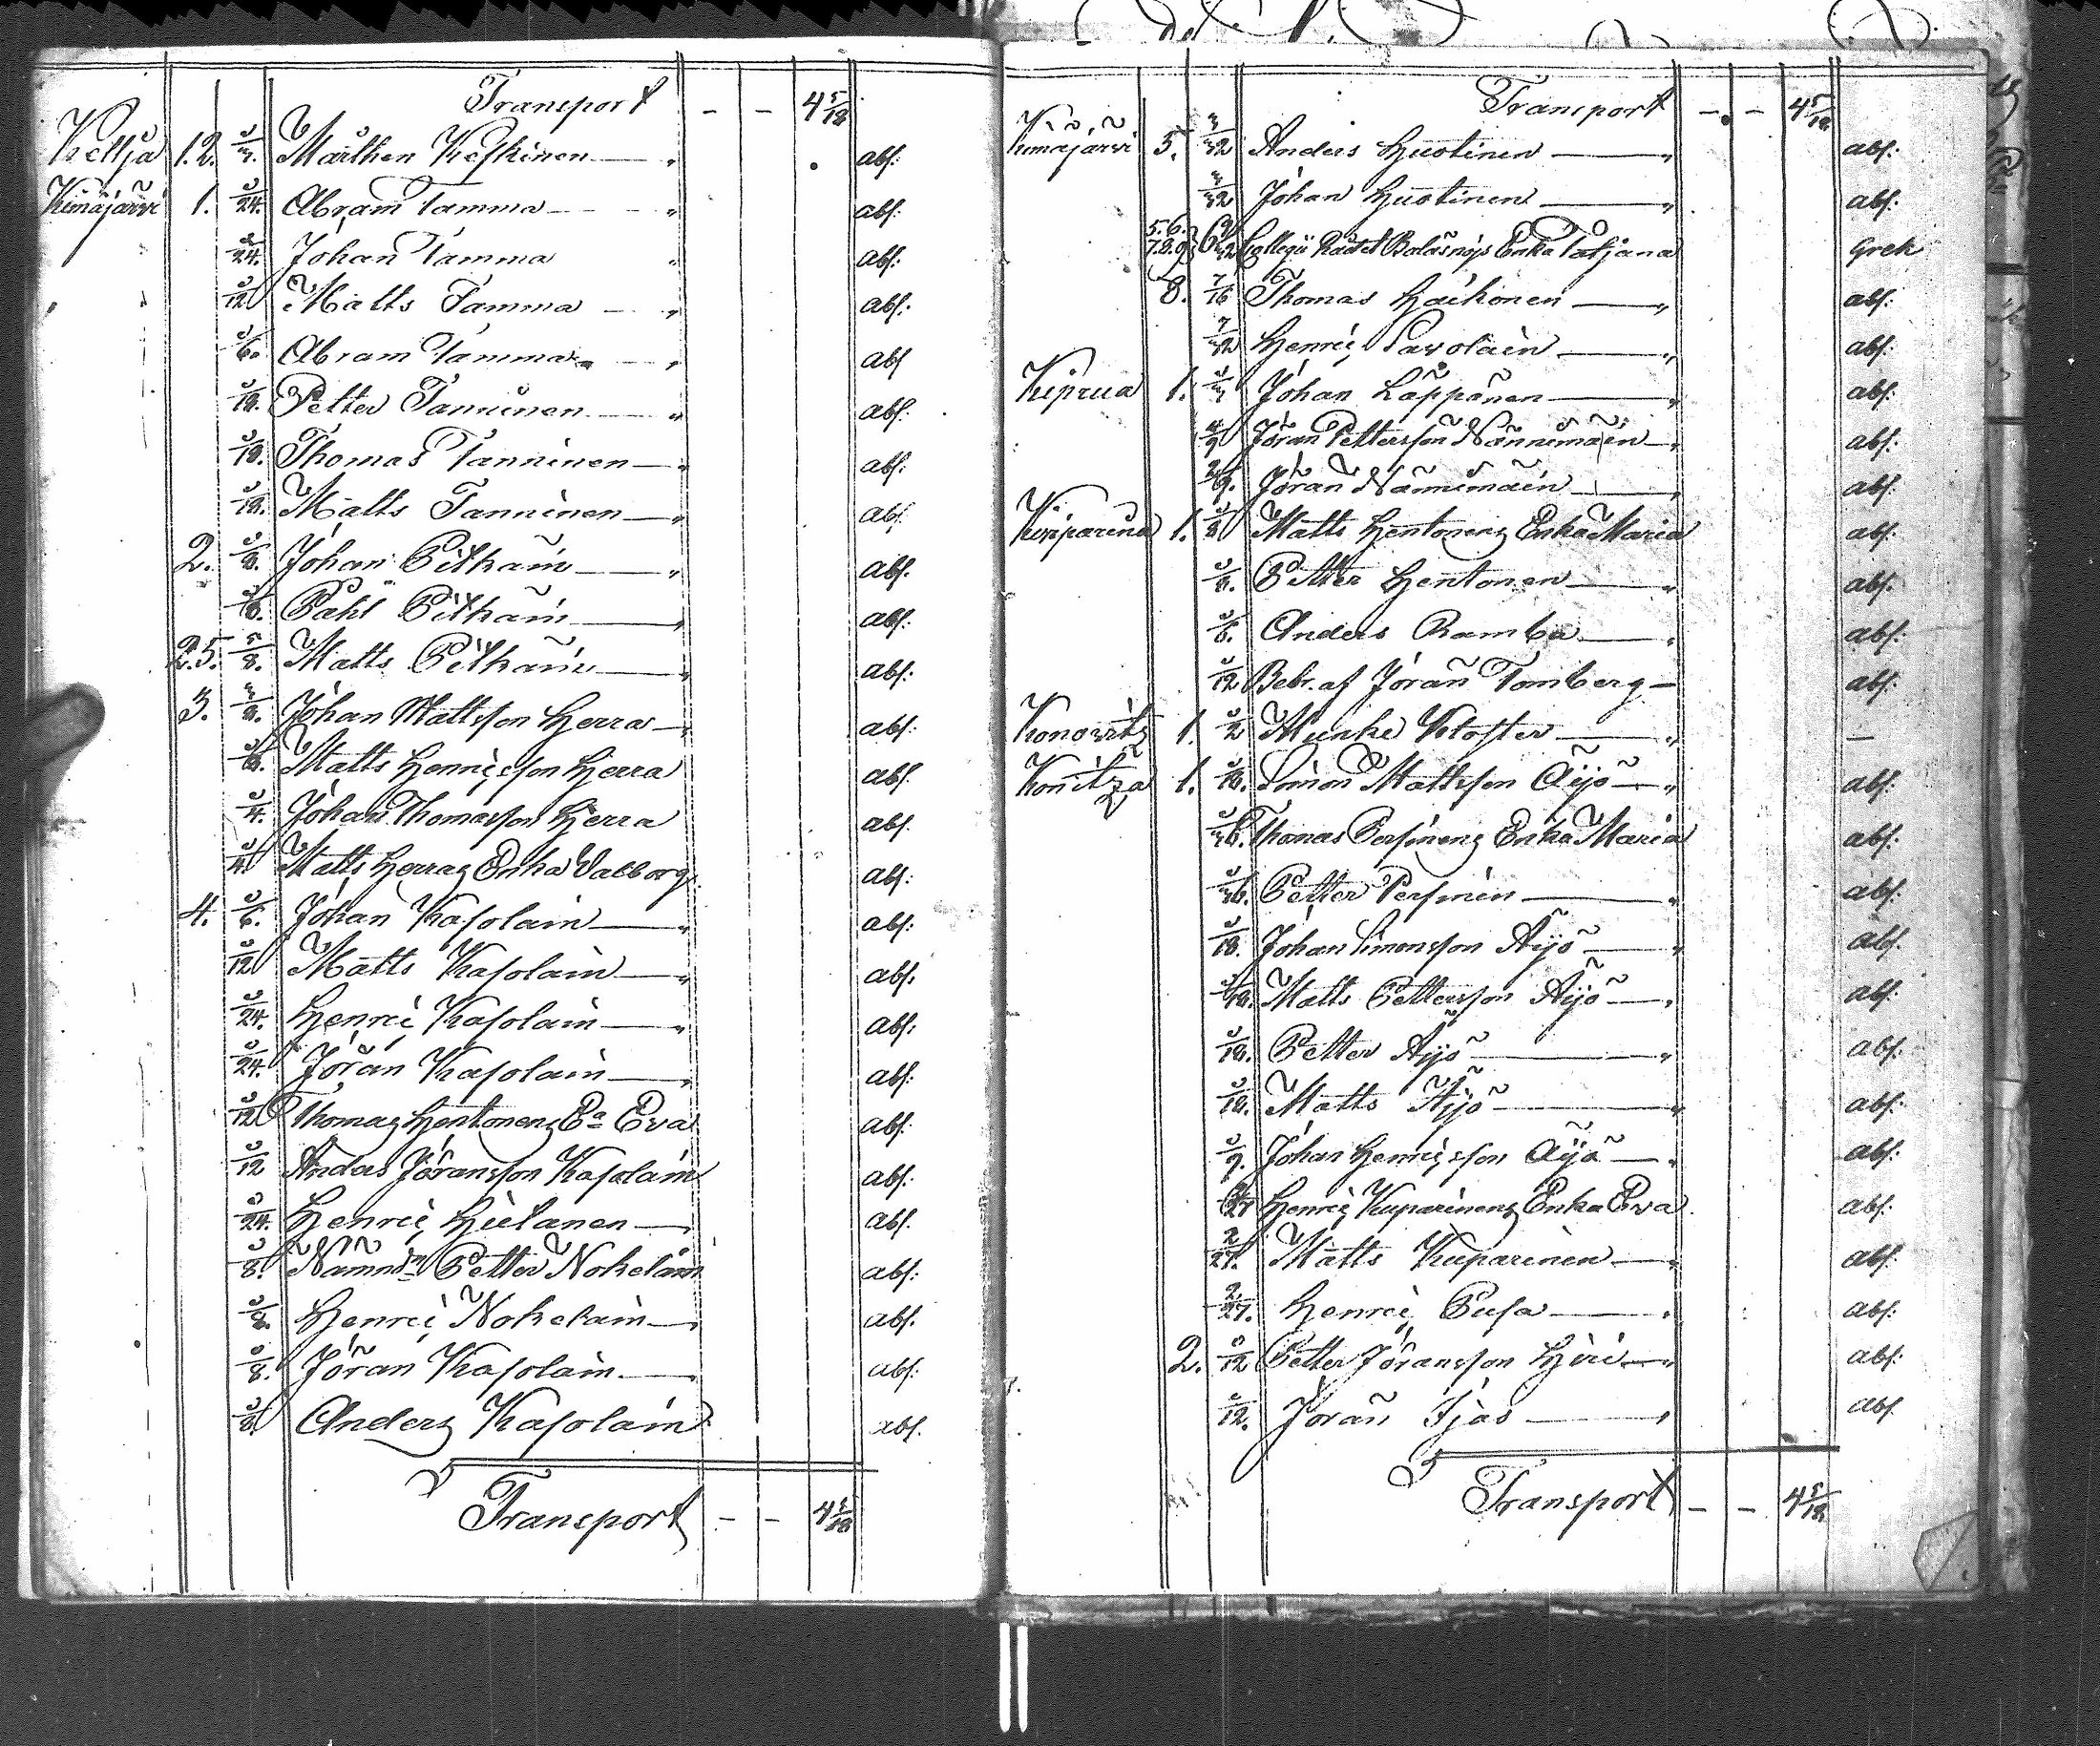 Transport - - 4 5/18
Keltja 1.2. 1/3. Märthen Keskinen abs:
Kimäjärvi 1. 1/24. Abram Tamma abs:
1/24. Johan Tamma abs:
1/12 Matts Tamma abs:
1/6. Abram Tamma abs
1/18. Petter Tanninen abs:
1/18. Thomas Tanninen abs:
1/18. Matts Tanninen abs:
2. 1/8. Johan Pitkäin abs.
1/8. Påhl Pitkäin abs:
2.5. 5/8. Matts Pitkäin abs:
3. 3/8. Johan Mattsson Herra abs:
Matts Henricsson Herra abs:
1/4. Johan Thomasson Herra abs.
1/4. Matts Herras Enka Valborg abs:
4. 1/6. Johan Kasolain abs:
1/12 Matts Kasolain abs.
1/24. Henric Kasolain abs.
1/24. Jöran Kasolain abs:
1/12 Thomas Hentonens Ea Eva abs:
1/12 Anders Jöransson Kasolain abs:
1/24. Henric Hietanen abs.
1/8. Nämndn Petter Nokelain abs:
1/8. Henric Nokelain abs.
1/8. Jöran Kasolain abs:
1/8. Anders Kasolain abs.
Transport - - 4 5/18
Transport - - 4 5/18
Kimäjärvi 5. 3/32 Anders Huotinen abs:
3/32 Johan Huotinen abs:
5.6. 7.8.9. Collegii Rådet Enka Tatjana Grek
8. 7/16 Thomas Häikönen abs:
7/32 Henric Pavolain abs:
Kiprua 1. 1/3 Johan Läppänen abs:
4/9 Jöran Pettersson Nännimäin abs:
2/9. Jöran Nännimäin abs:
1. 1/3 Matts Hentonens Enka Maria abs:
1/6. Petter Hentonen abs.
1/6. Anders Ramba abs:
1/12 Bebr. af Jöran Tomberg abs.
Konovitz 1. 1/2 Munke Kloster —
Konitza 1. 1/18. Simon Mattsson Äijö abs:
1/36. Thomas Persinens Enka Maria abs:
1/36. Petter Persinen abs:
1/18. Johan Simonsson Äijö abs.
1/18. Matts Pettersson Äijö abs:
1/18. Petter Äijö abs:
1/18. Matts Äijö abs:
1/9. Johan Henricsson Äijö abs:
2/27 Henric Kuparinens Enka Eva abs:
2/27. Matts Kuparinen abs:
2/27. Henric Pusa abs:
2. 1/12 Petter Jöransson Hiri abs:
1/12. Jöran Tjas abs
Transport - - 4 5/18